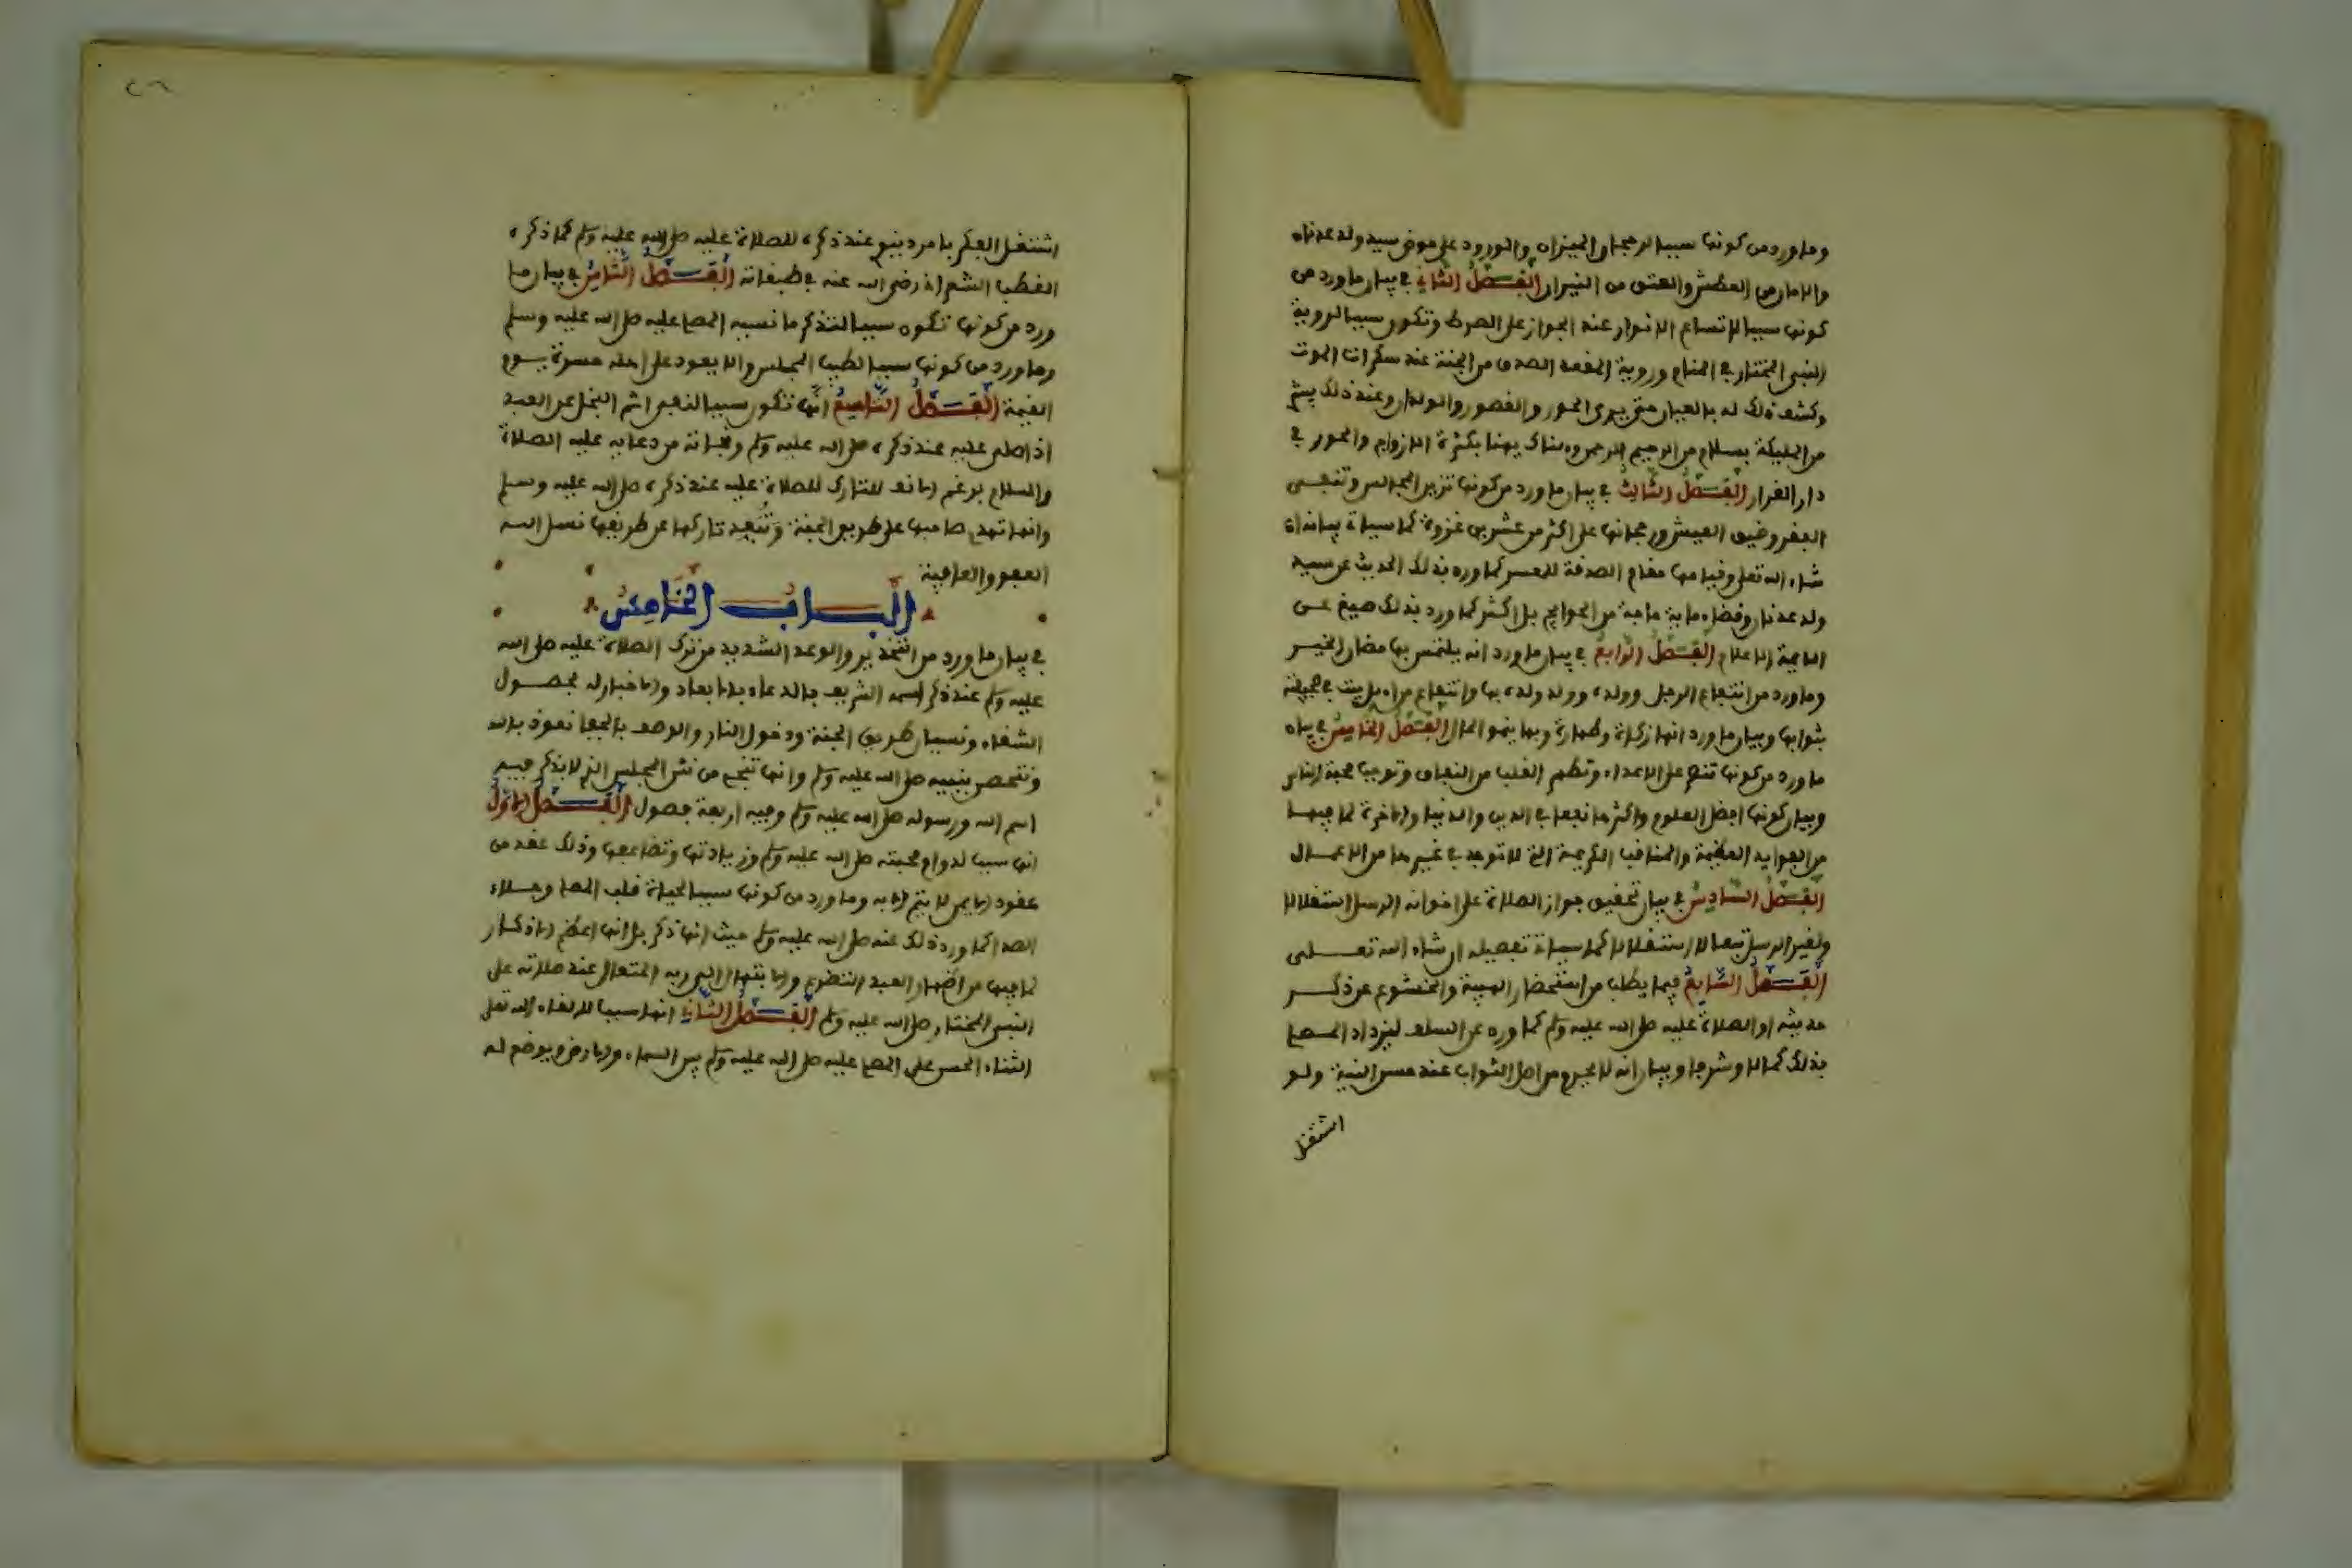 وما ورد من كونها سببا لرجحان الميزان والورود على حوض سيد ولد عدنان
والامان من العطش والعتق من النيران الفصل الثاني في بيان ما ورد من
كونها سببا لاتساع الانوار عند الجواز على الصراط وتكون سببا لروية
النبي المختار في المنام وروية المقعد الصدق من الجنة عند سكرات الموت
وكشف ذلك له بالعيان حتى يرى الحور والقصور والولدان وعند ذلك يبشر
من المليكة بسلام من الرحيم الرحمن وهناك يهنا بكثرة الازواج والحور في
دار القرار الفصل الثالث في بيان ما ورد من كونها تزين المجالس وتنفى
الفقر وضيق العيش ورجحانها على اكثر من عشرين غزوة كما سياتي بيانه ان
شاء الله تعلى وقيامها مقام الصدقة للمعسر كما ورد بذلك الحديث عن سيد
ولد عدنان وقضاء ماية حاجة من الحوايج بل اكثر كما ورد بذلك صيغ عن
الايمة الاعلام الفصل الرابع في بيان ما ورد انه يلتمس بها مضان الخير
وما ورد من انتفاع الرجل وولده وولد ولده بها وانتفاع من اهديت في صحيفته
بثوابها وبيان ما ورد انها زكاة وطهارة وبها ينمو المال الفصل الخامس في بيان
ما ورد من كونها تنصر على الاعداء وتطهر القلب من النفاق وتوجب محبة الناس
وبيان كونها افضل العلوم واكثرها نفعا في الدين والدنيا والاخرة لما فيها
من الفوايد العظيمة والمناقب الكريمة التي لا توجد في غيرها من الاعمال
الفصل السادس في بيان تحقيق جواز الصلاة على اخوانه الرسل استقلالا
ولغير الرسل تبعا لا استقلالا كما سياتي تفصيله ان شاء الله تعلى
الفصل السابع فيما يطلب من استحضار الهيبة والخشوع عن ذكر
حديثه او الصلاة عليه صلى الله عليه وسلم كما ورد عن السلف ليزداد المصلي
بذلك كمالا وشرفا وبيان انه لا يحرم من اصل الثواب عند حسن النية ولو
اشتغل
٢٦
اشتغل الفكر بامر دنيوي عند ذكره للصلاة عليه صلى الله عليه وسلم كما ذكره
القطب الشعراني رضي الله عنه في طبقاته الفصل الثامن في بيان ما
ورد من كونها تكون سببا لتذكر ما نسيه المصلي عليه صلى الله عليه وسلم
وما ورد من كونها سببا لطيب المجلس والا يعود على اهله حسرة يوم
القيمة الفصل التاسع انها تكون سببا لنفي اثم البخل عن العبد
اذا صلى عليه عند ذكره صلى الله عليه وسلم ونجاته من دعايه عليه الصلاة
والسلام برغم انفه للتارك للصلاة عليه عند ذكره صلى الله عليه وسلم
وانها تهدي صاحبها على طريق الجنة وتبعد تاركها عن طريقها نسل الله
العفو والعافية
الباب الخامس
في بيان ما ورد من التحذير والوعد الشديد من ترك الصلاة عليه صلى الله
عليه وسلم عند ذكر اسمه الشريف بالدعاء بالابعاد والاخبار له بحصول
الشقاء ونسيان طريق الجنة ودخول النار والوصف بالجفا نعوذ بالله
ونتحصن بنبيه صلى الله عليه وسلم وانها تنجي من نتن المجلس الذي لا يذكر فيه
اسم الله ورسوله صلى الله عليه وسلم وفيه اربعة فصول الفصل الاول
انها سببا لدوام محبته صلى الله عليه وسلم وزيادتها وتضاعفها وذلك عقد من
عقود الايمان لا يتم الا به وما ورد من كونها سببا لحياة قلب المصلي وجلاء
الصدا كما ورد ذلك عنه صلى الله عليه وسلم حيث انها ذكر بل انها اعظم الاذكار
لما فيها من اظهار العبد التضرع والابتهال الى ربه المتعال عند صلاته على
النبي المختار صلى الله عليه وسلم الفصل الثاني انها سببا لالقاء الله تعلى
الثناء الحسن على المصلي عليه صلى الله عليه وسلم بين السماء والارض ويوضع له